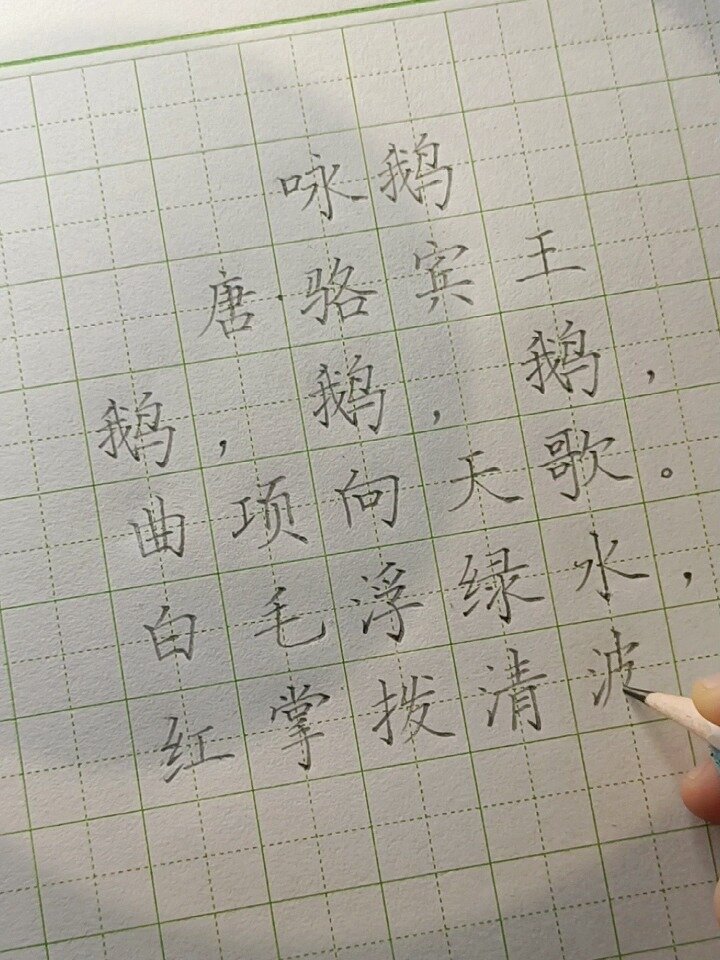 咏鹅
唐·骆宾王
鹅，鹅，鹅，
曲项向天歌。
白毛浮绿水，
红掌拨清波